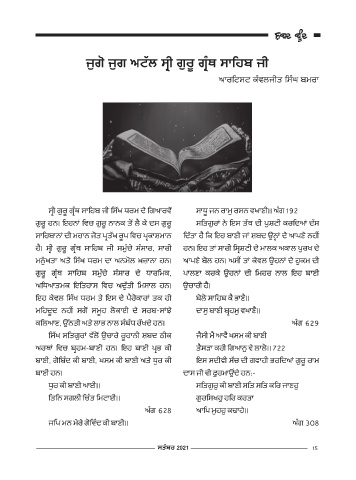 ਜੁਗੋ ਜੁਗ ਅਟੱਲ ਸ੍ਰੀ ਗੁਰੂ ਗ੍ਰੰਥ ਸਾਹਿਬ ਜੀ
ਆਰਟਿਸਟ ਕੰਵਲਜੀਤ ਸਿੰਘ ਬਮਰਾ
ਸ੍ਰੀ ਗੁਰੂ ਗ੍ਰੰਥ ਸਾਹਿਬ ਜੀ ਸਿੱਖ ਧਰਮ ਦੇ ਗਿਆਰਵੇਂ
ਗੁਰੂ ਹਨ। ਇਹਨਾਂ ਵਿਚ ਗੁਰੂ ਨਾਨਕ ਤੋਂ ਲੈ ਕੇ ਦਸ ਗੁਰੂ
ਸਾਹਿਬਾਨਾਂ ਦੀ ਮਹਾਨ ਜੋਤ ਪ੍ਰਤੱਖ ਰੂਪ ਵਿਚ ਪ੍ਰਕਾਸ਼ਮਾਨ
ਹੈ। ਸ੍ਰੀ ਗੁਰੂ ਗ੍ਰੰਥ ਸਾਹਿਬ ਜੀ ਸਮੁੱਚੇ ਸੰਸਾਰ, ਸਾਰੀ
ਮਨੁੱਖਤਾ ਅਤੇ ਸਿੱਖ ਧਰਮ ਦਾ ਅਨਮੋਲ ਖ਼ਜ਼ਾਨਾ ਹਨ।
ਗੁਰੂ ਗ੍ਰੰਥ ਸਾਹਿਬ ਸਮੁੱਚੇ ਸੰਸਾਰ ਦੇ ਧਾਰਮਿਕ,
ਅਧਿਆਤਮਕ ਇਤਿਹਾਸ ਵਿਚ ਅਦੁੱਤੀ ਮਿਸਾਲ ਹਨ।
ਇਹ ਕੇਵਲ ਸਿੱਖ ਧਰਮ ਤੇ ਇਸ ਦੇ ਪੈਰੋਕਾਰਾਂ ਤਕ ਹੀ
ਮਹਿਦੂਦ ਨਹੀਂ ਸਗੋਂ ਸਮੂਹ ਲੋਕਾਈ ਦੇ ਸਰਬ-ਸਾਂਝੇ
ਕਲਿਆਣ, ਉੱਨਤੀ ਅਤੇ ਲਾਭ ਨਾਲ ਸੰਬੰਧ ਰੱਖਦੇ ਹਨ।
ਸਿੱਖ ਸਤਿਗੁਰਾਂ ਵੱਲੋਂ ਉਚਾਰੇ ਰੂਹਾਨੀ ਸ਼ਬਦ ਠੀਕ
ਅਰਥਾਂ ਵਿਚ ਬ੍ਰਹਮ-ਬਾਣੀ ਹਨ। ਇਹ ਬਾਣੀ ਪ੍ਰਭ ਕੀ
ਬਾਣੀ, ਗੋਬਿੰਦ ਕੀ ਬਾਣੀ, ਖਸਮ ਕੀ ਬਾਣੀ ਅਤੇ ਧੁਰ ਕੀ
ਬਾਣੀ ਹਨ।
ਧੁਰ ਕੀ ਬਾਣੀ ਆਈ॥
ਤਿਨਿ ਸਗਲੀ ਚਿੰਤ ਮਿਟਾਈ॥
ਅੰਗ 628
ਜਪਿ ਮਨ ਮੇਰੇ ਗੋਵਿੰਦ ਕੀ ਬਾਣੀ॥
ਸਾਧੂ ਜਨ ਰਾਮੁ ਰਸਨ ਵਖਾਣੀ॥ ਅੰਗ 192
ਸਤਿਗੁਰਾਂ ਨੇ ਇਸ ਤੱਥ ਦੀ ਪੁਸ਼ਟੀ ਕਰਦਿਆਂ ਦੱਸ
ਦਿੱਤਾ ਹੈ ਕਿ ਇਹ ਬਾਣੀ ਜਾਂ ਸ਼ਬਦ ਉਨ੍ਹਾਂ ਦੇ ਆਪਣੇ ਨਹੀਂ
ਹਨ। ਇਹ ਤਾਂ ਸਾਰੀ ਸ੍ਰਿਸ਼ਟੀ ਦੇ ਮਾਲਕ ਅਕਾਲ ਪੁਰਖ ਦੇ
ਆਪਣੇ ਬੋਲ ਹਨ। ਅਸੀਂ ਤਾਂ ਕੇਵਲ ਉਹਨਾਂ ਦੇ ਹੁਕਮ ਦੀ
ਪਾਲਣਾ ਕਰਕੇ ਉਹਨਾਂ ਦੀ ਮਿਹਰ ਨਾਲ ਇਹ ਬਾਣੀ
ਉਚਾਰੀ ਹੈ।
ਬੋਲੇ ਸਾਹਿਬ ਕੈ ਭਾਣੈ॥
ਦਾਸੁ ਬਾਣੀ ਬ੍ਰਹਮੁ ਵਖਾਣੈ॥
ਅੰਗ 629
ਜੈਸੀ ਮੈ ਆਵੈ ਖਸਮ ਕੀ ਬਾਣੀ
ਤੈਸੜਾ ਕਰੀ ਗਿਆਨੁ ਵੇ ਲਾਲੋ॥ 722
ਇਸ ਸਦੀਵੀ ਸੱਚ ਦੀ ਗਵਾਹੀ ਭਰਦਿਆਂ ਗੁਰੂ ਰਾਮ
ਦਾਸ ਜੀ ਵੀ ਫ਼ੁਰਮਾਉਂਦੇ ਹਨ:-
ਸਤਿਗੁਰੁ ਕੀ ਬਾਣੀ ਸਤਿ ਸਤਿ ਕਰਿ ਜਾਣਹੁ
ਗੁਰਸਿਖਹੁ ਹਰਿ ਕਰਤਾ
ਆਪਿ ਮੁਹਹੁ ਕਢਾਏ॥
ਅੰਗ 308
ਸਤੰਬਰ 2021
15